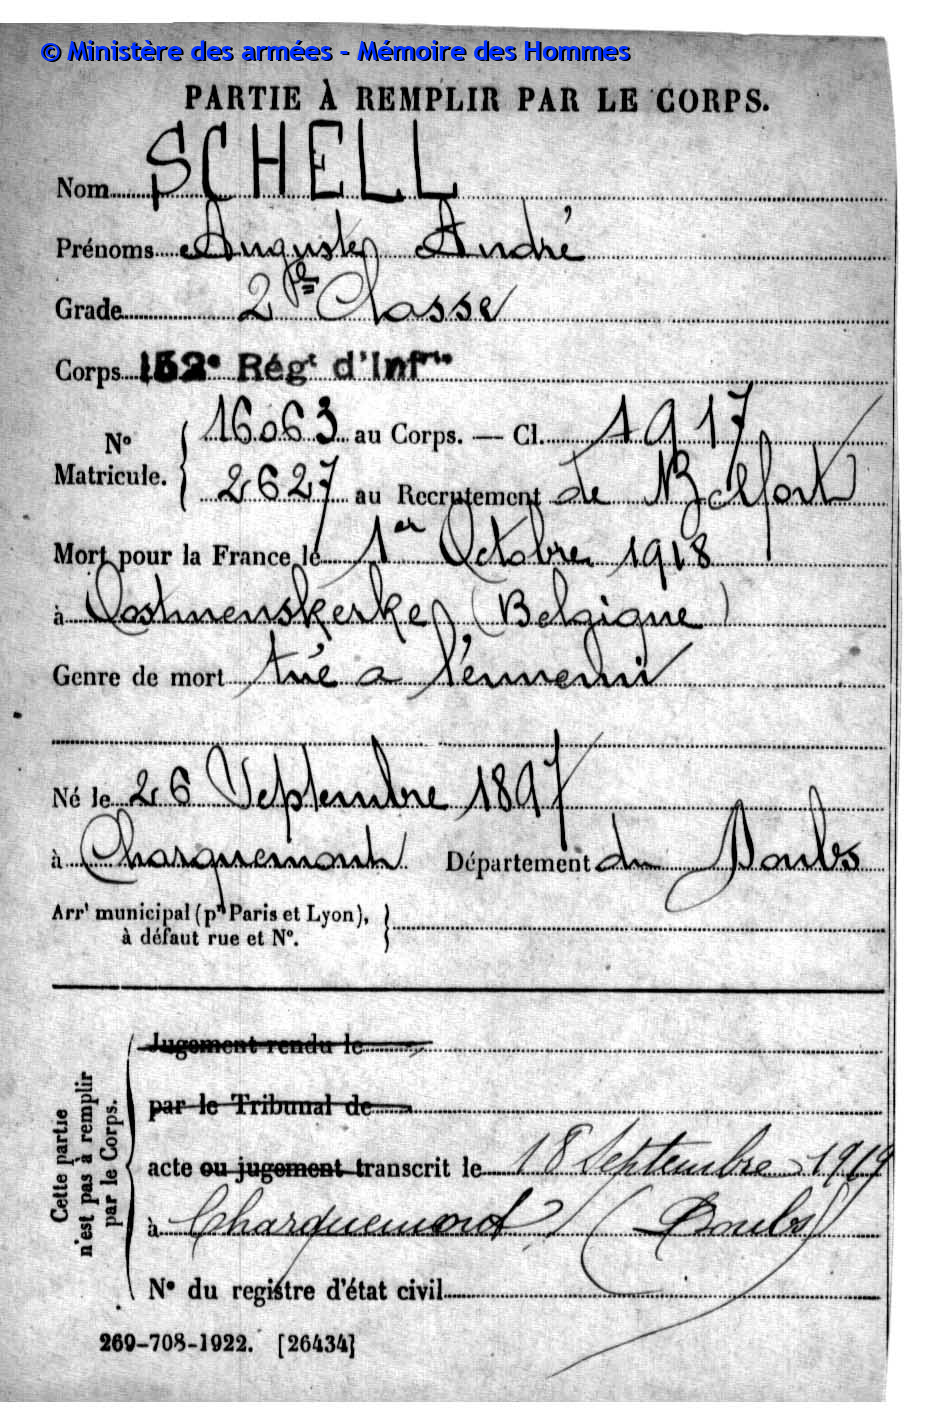 © Ministère des armées - Mémoire des Hommes
PARTIE À REMPLIR PAR LE CORPS.
Nom SCHELL
Prénoms Auguste André
Grade 2e Classe
Corps 152e Régt d'Infrie
No Matricule. { 16063 au Corps. — Cl. 1917
2627 au Recrutement de Belfort
Mort pour la France le 1er Octobre 1918
à Oostnenskerke (Belgique)
Genre de mort tué à l'ennemi
Né le 26 Septembre 1897
à Charquemont Département du Doubs
Arrt municipal (pr Paris et Lyon),
à défaut rue et No.
Cette partie
n'est pas à remplir
par le Corps.
Jugement rendu le
par le Tribunal de
acte ou jugement transcrit le 18 Septembre 1919
à Charquemont (Doubs)
No du registre d'état civil
269-708-1922. [26434]